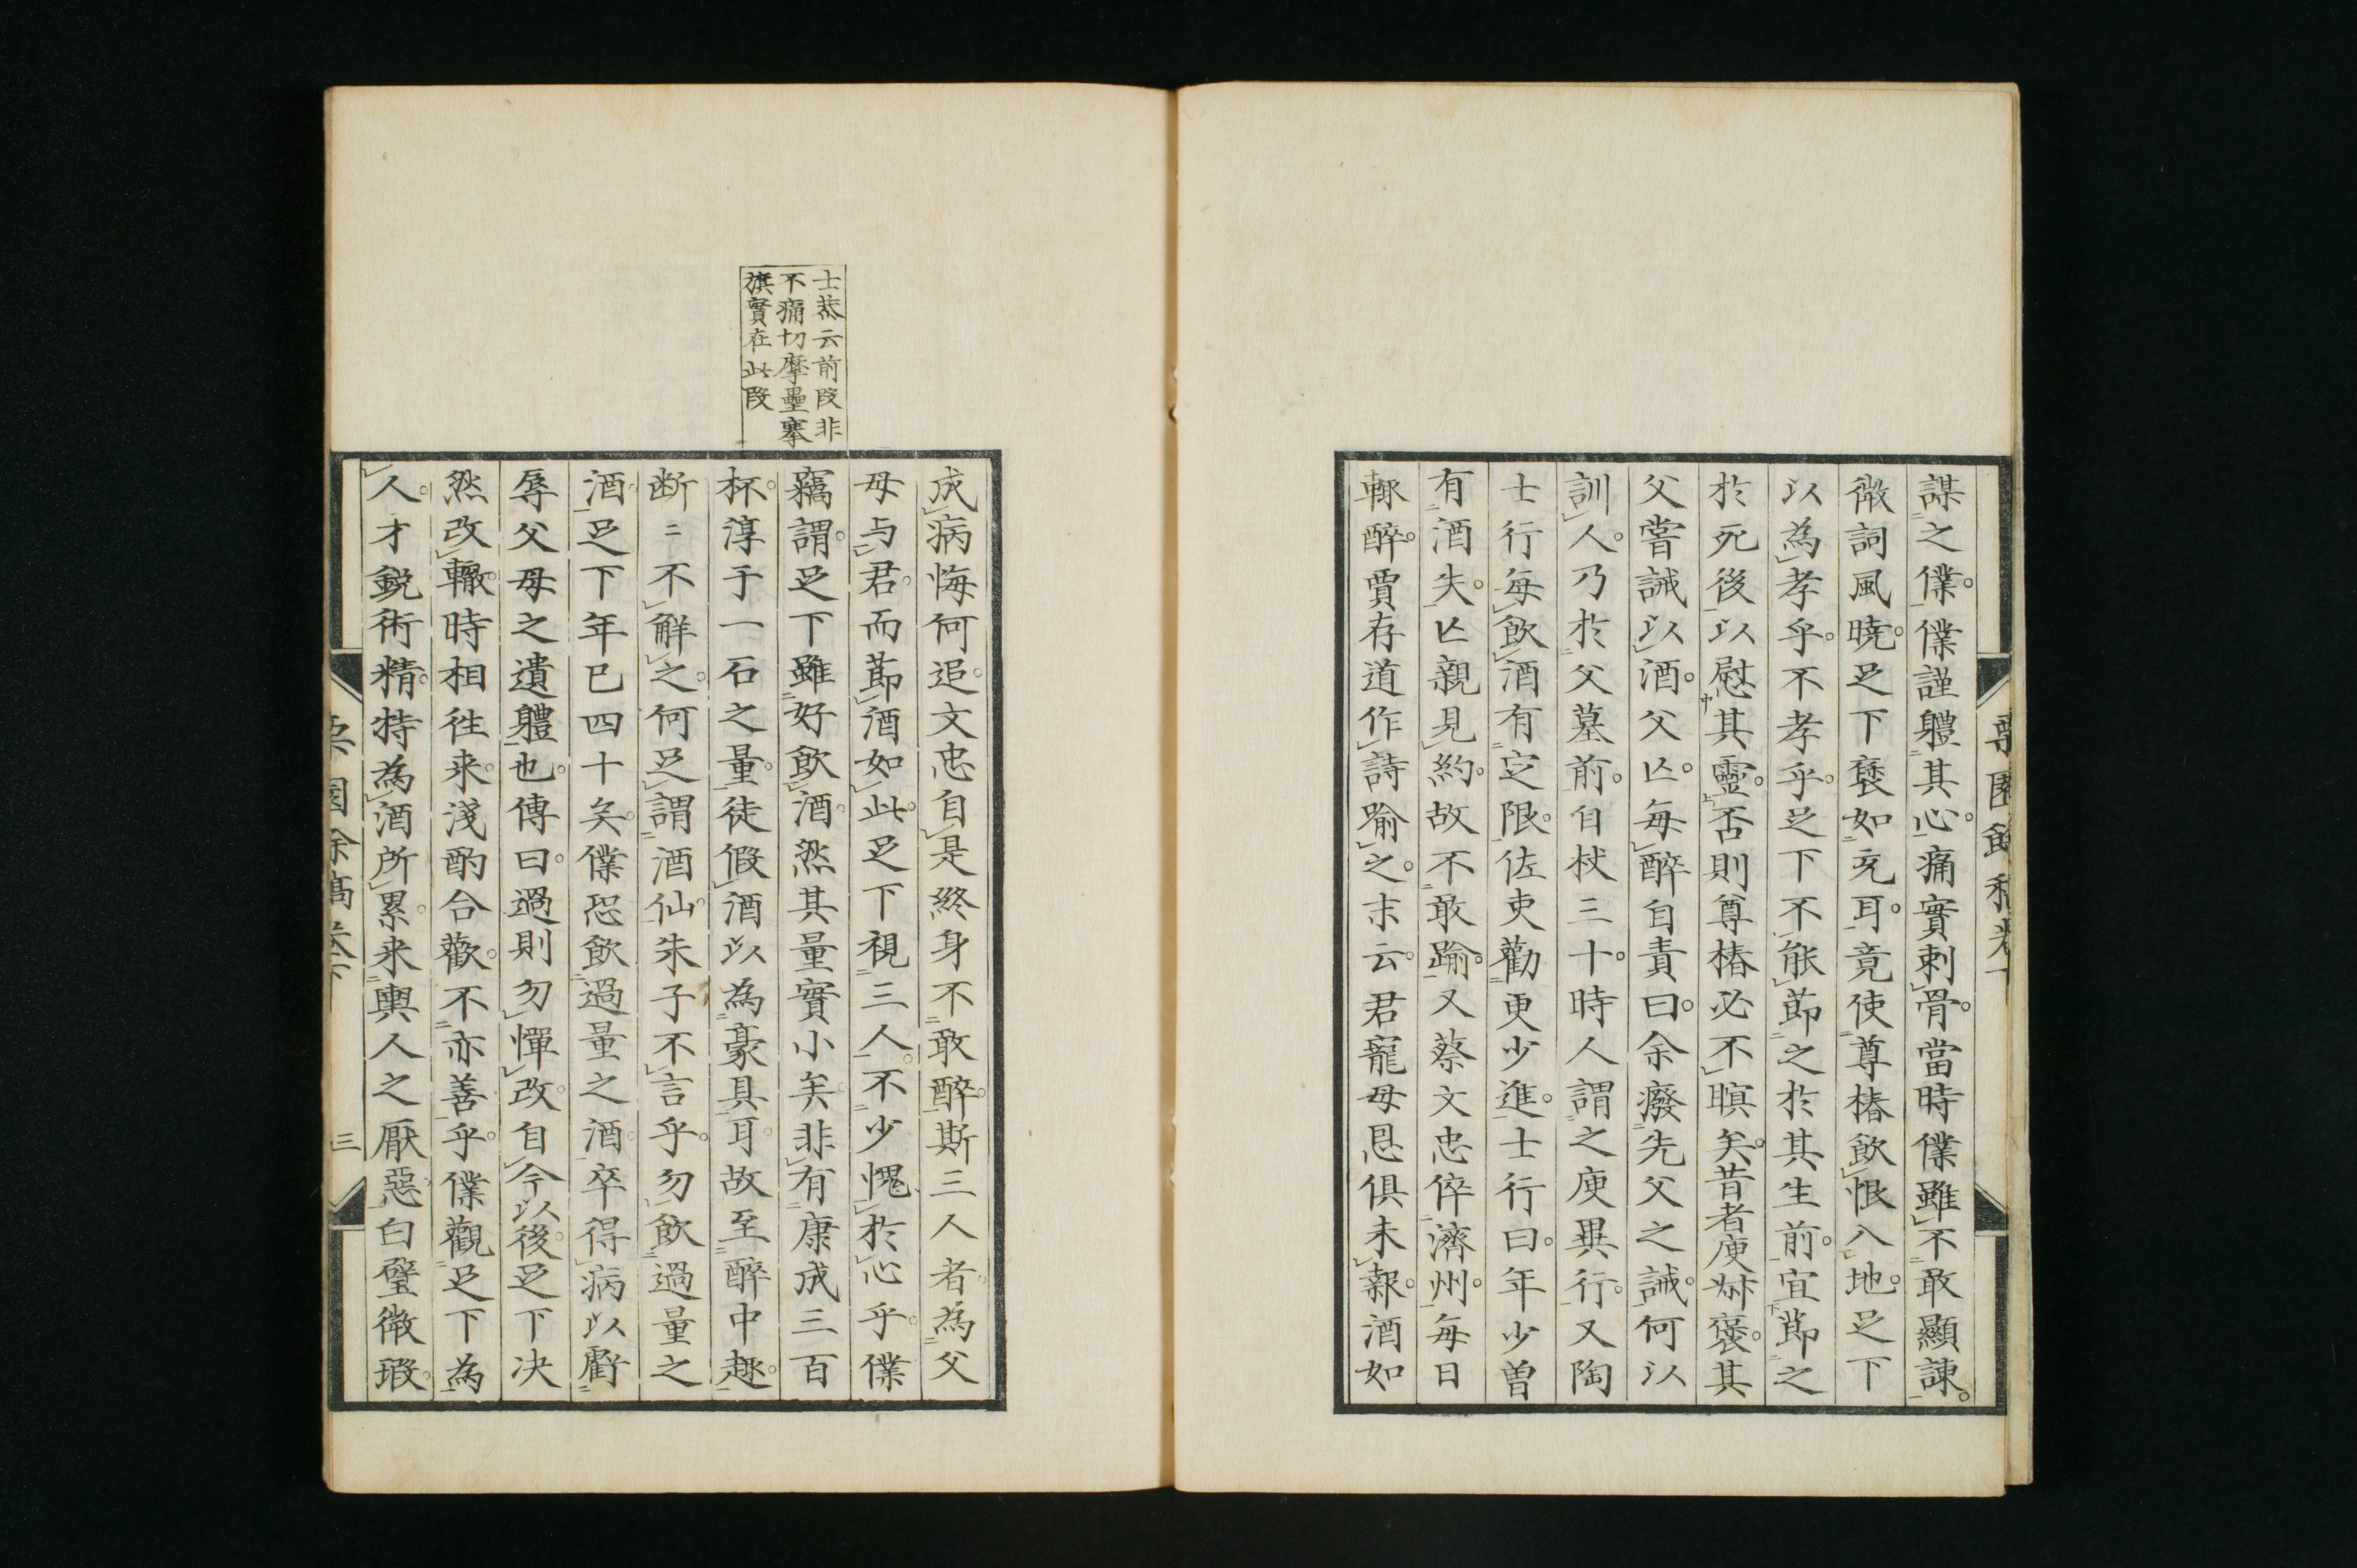 謀之僕。僕謹體其心。痛實刺骨。當時僕雖不敢顯諌。
微詞風曉。足下褎如充耳。竟使尊椿飲恨入地。足下
以為孝乎。不孝乎。足下不能節之於其生前。宜節之
於死後以慰其靈。否則尊椿必不瞑矣。昔者庾叔褒。其
父嘗誡以酒。父亡。每醉自責曰。余廢先父之誡。何以
訓人。乃於父墓前。自杖三十。時人謂之庾異行。又陶
士行每飲酒有定限。佐吏勸更少進。士行曰。年少曽
有酒失。亡親見約。故不敢踰。又蔡文忠倅濟州。每日
輙醉。賈存道作詩踰之。末云。君寵母恩俱未報。酒如
成病悔何追。文忠自是終身不敢醉。斯三人者。為父
母与君。而節酒如此。足下視三人。不少愧於心乎。僕
竊謂。足下雖好飲酒。然其量實小矣。非有康成三百
杯。淳于一石之量。徒假酒以為豪具耳。故至醉中趣。
断ニ不解之。何足謂酒仙。朱子不言乎。勿飲過量之
酒。足下年已四十矣。僕恐飲過量之酒。卒得病以虧
辱父母之遺體也。傳曰。過則勿憚改。自今以後。足下决
然改轍。時相徃来。淺酌合歡。不亦善乎。僕觀足下為
人。才鋭術精。特為酒所累。来輿人之厭惡。白璧微瑕。
士恭云前段非
不痛切摩壘搴
旗實在此段
園餘稿卷下
園餘稿卷下
三